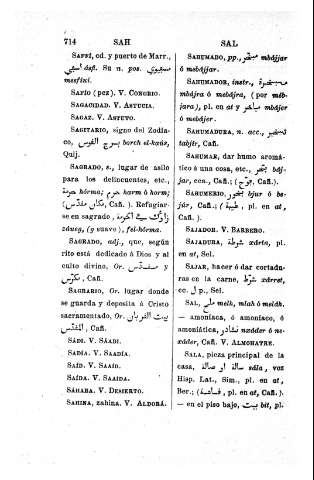 714 SAH SAL
SAFFÍ, cd. y puerto de Marr.,
أسفي ásfi. Su n. pos. مسفيوي
mesfíxi.
SAFIO (pez). V. CONGRIO.
SAGACIDAD. V. ASTUCIA.
SAGAZ. V. ASTUTO.
SAGITARIO, signo del Zodía-
co, برج القوس borch el-kaús,
Quij.
SAGRADO, s., lugar de asilo
para los delincuentes, etc.,
حرمة hórma; حرم harm ó horm;
(مكان مقدّس, Cañ.). Refugiar-
se en sagrado,
záueg, (g suave), fel-hórma.
SAGRADO, adj., que, según
rito está dedicado á Dios y al
culto divino, Or. مقدّس y
مكرّس, Cañ.
SAGRARIO, Or. lugar donde
se guarda y deposita á Cristo
sacramentado, Or. بيت القربان,
المقدس, Cañ.
SÁDI. V. SÁADI.
SADÍA. V. SAADÍA.
SAÍD. V. SAAÍD.
SAÍDA. V. SAAIDA.
SÁHARA. V. DESIERTO.
SAHINA, zahina. V. ALDORÁ.
SAHUMADO, pp., مبخّر mbájjar
ó mebájjar.
SAHUMADOR, instr., مبخرة
mbájra ó mebájra, (por mèb-
jara), pl. en at y مباخر mbájer
ó mebájer.
SAHUMADURA, n. acc., تبخير
tabjír, Cañ.
SAHUMAR, dar humo aromá-
tico á una cosa, etc., بخّر báj-
jar, ccn., Cañ.; (فوّح, Cañ.).
SAHUMERIO, بخور bjur ó be-
júr, Cañ.; (طيبة, pl. en at,
Cañ.).
SAJADOR. V. BARBERO.
SAJADURA, شرطة xárta, pl.
en at, Sel.
SAJAR, hacer ó dar cortadu-
ras en la carne, شرط xárret,
cc. ل p., Sel.
SAL, ملح melh, mlah ó meláh.
— amoníaca, ó amoníaco, ó
amoniática, نشادر nxáder ó ne-
xáder, Cañ. V. ALMOHATRE.
SALA, pieza principal de la
casa, صالة ó سالة sála, voz
Hisp. Lat., Sim., pl. en at,
Ber.; (فساشية, pl. en at, Cañ.).
— en el piso bajo, بيت bit, pl.